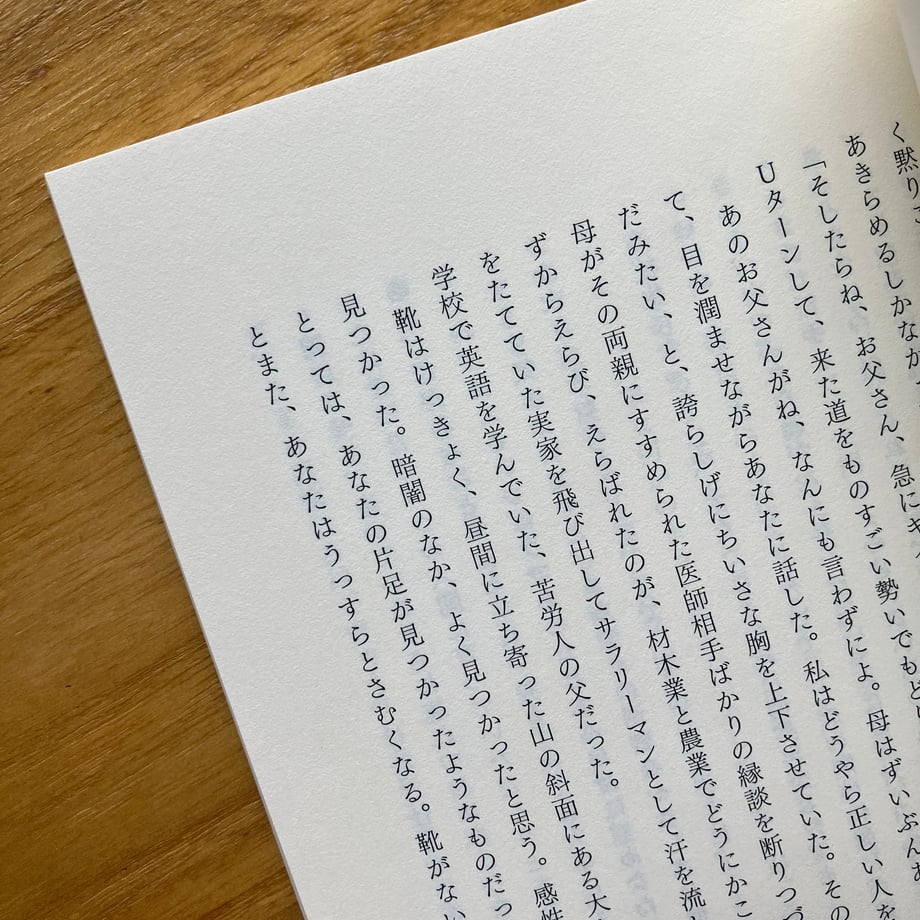 く黙りこ
あきらめるしかなか
「そしたらね、お父さん、急にキ
Uターンして、来た道をものすごい勢いでもど
　あのお父さんがね、なんにも言わずによ。母はずいぶんあ
て、目を潤ませながらあなたに話した。私はどうやら正しい人を
だみたい、と、誇らしげにちいさな胸を上下させていた。その
母がその両親にすすめられた医師相手ばかりの縁談を断りつづ
ずからえらび、えらばれたのが、材木業と農業でどうにかこ
をたてていた実家を飛び出してサラリーマンとして汗を流
学校で英語を学んでいた、苦労人の父だった。
　靴はけっきょく、昼間に立ち寄った山の斜面にある大
見つかった。暗闇のなか、よく見つかったと思う。感性
とっては、あなたの片足が見つかったようなものだっ
とまた、あなたはうっすらとさむくなる。靴がない